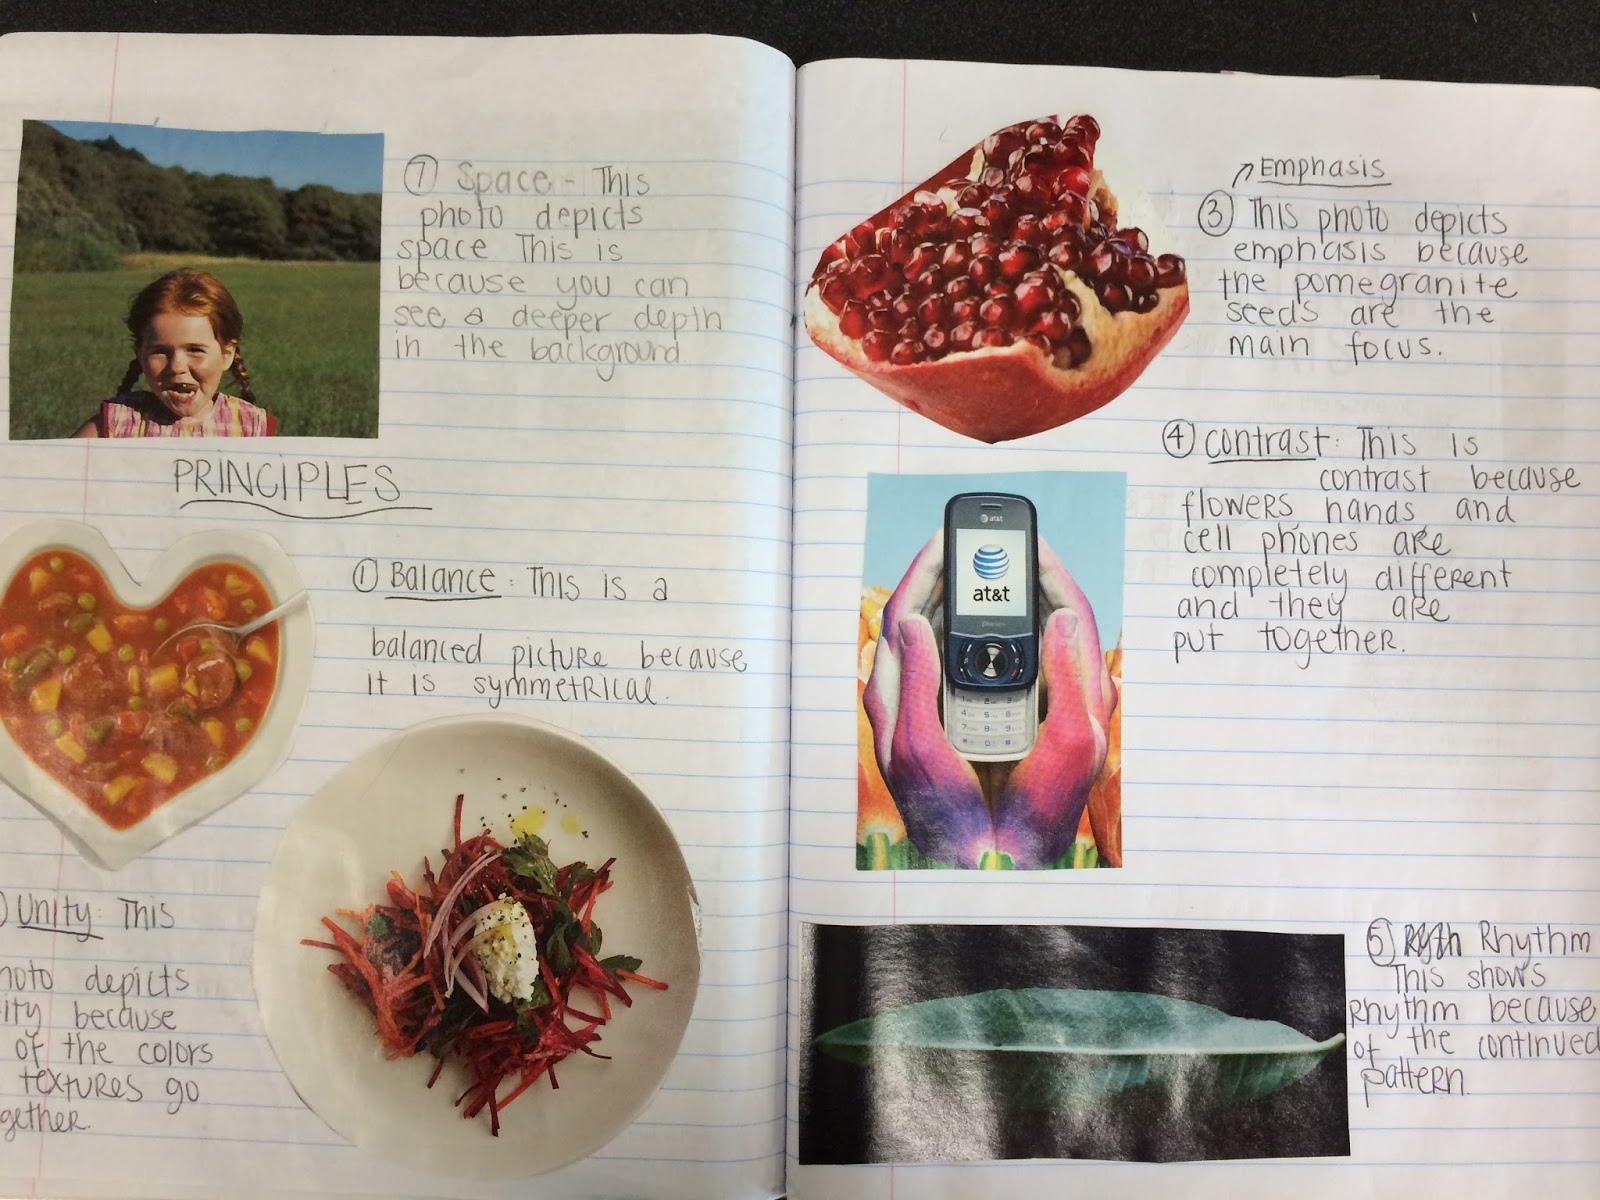 ⑦ Space - This
photo depicts
space. This is
because you can
see a deeper depth
in the background.
PRINCIPLES
① Balance: This is a
balanced picture because
it is symmetrical.
Unity: This
hoto depicts
ity because
of the colors
textures go
gether.
Emphasis
③ This photo depicts
emphasis because
the pomegranite
seeds are the
main focus.
④ Contrast: This is
contrast because
flowers hands and
cell phones are
completely different
and they are
put together.
at&t
at&t
⑤ Rhythm
This shows
Rhythm because
of the continued
pattern.